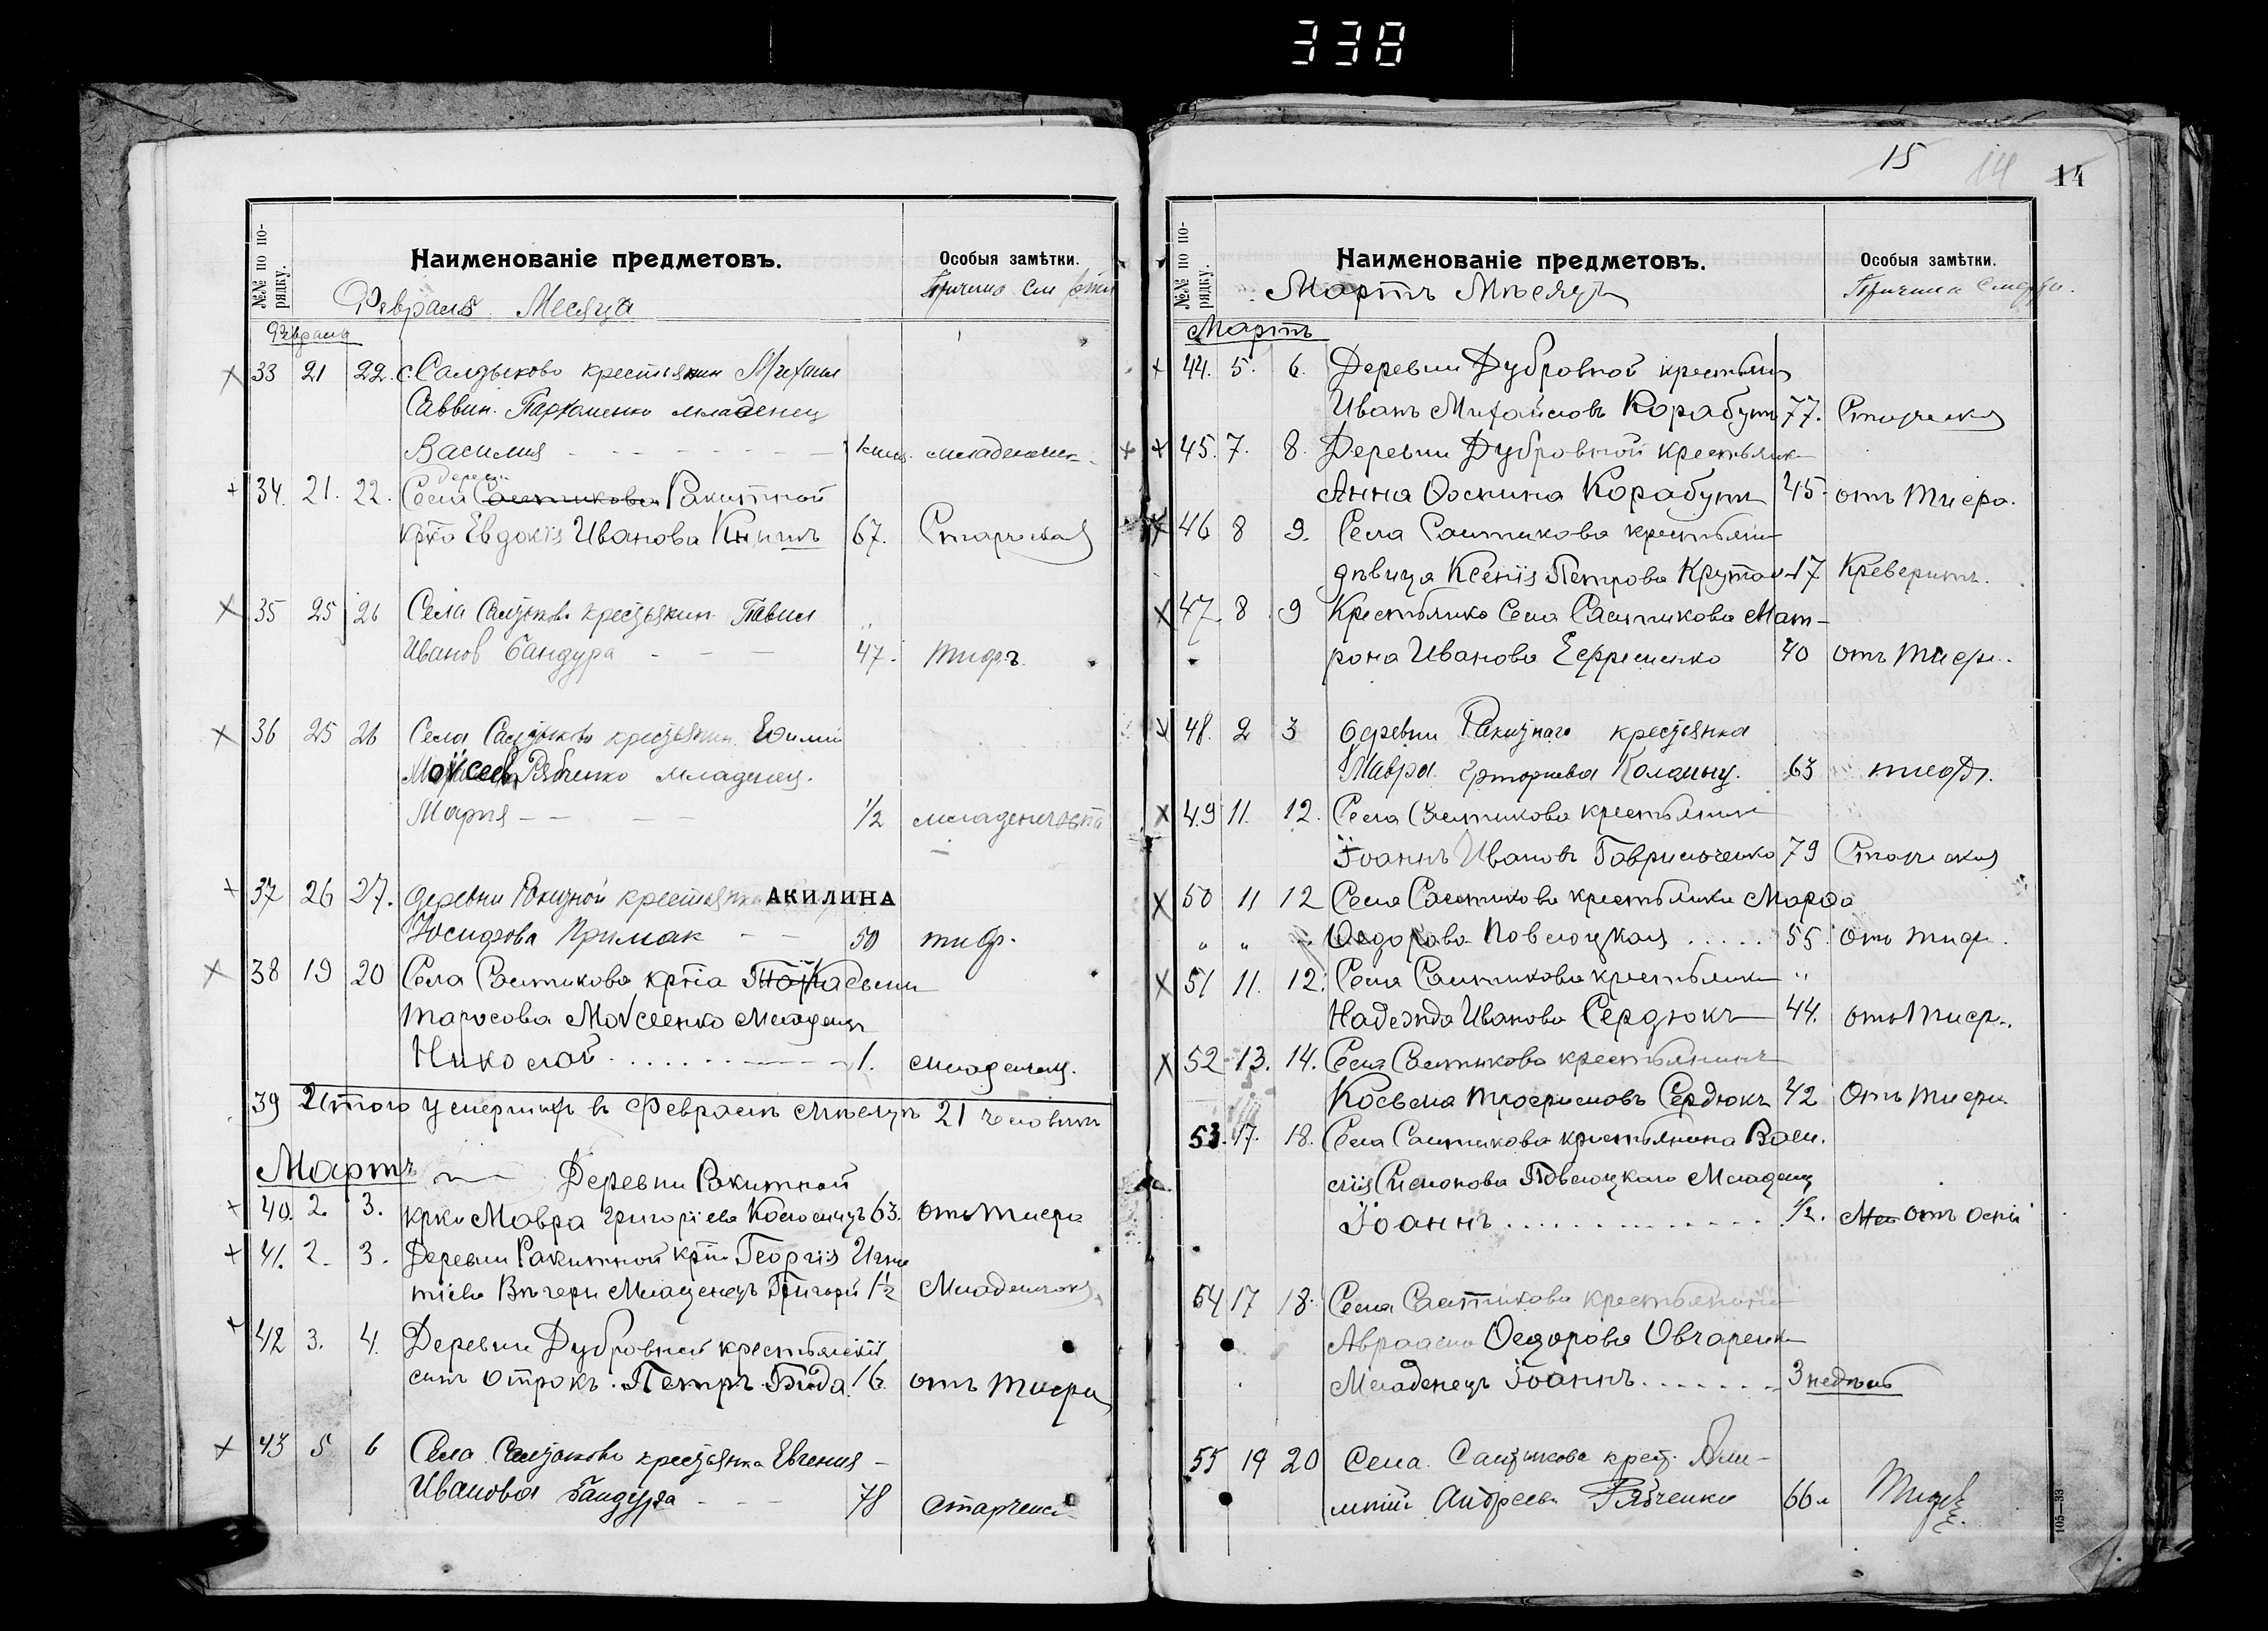 338
№№ по по-
рядку.
Наименованіе предметовъ.
Особыя замѣтки.
Февраля Месяца
Причина смерти
Февраль
33 21 22. с. Салтыково крестьянин Михаил
Саввин. Пархоменко младенец
Василий - - - - - - - младенческ.
34. 21. 22. Села деревни Ракитной
крка Евдокія Иванова Книшъ 67. Старческая
35 25 26 Села Салтыково крестьянин Павил
Иванов Бандура - - - 47. тифъ
36 25 26 Села Салтыково крестьянин. Ефимий
Моѵсеев Рябченко младенец.
Мария - - - - 1/2 младенческая
37 26 27. деревни Ракитной крестьянка АКИЛИНА
Иосифова Примак - - 50 тиф.
38 19 20 Села Салтикова кр
Тарасова Моѵсеенко Младенецъ
Николай . . . . . . . 1. младенчец.
39 Итого умерших в Феврале мѣсяцѣ 21 человѣкъ
Мартъ Деревни Ракитной
40. 2. 3. крка Мавра Григоріева 63. отъ тифа
41. 2. 3. Деревни Ракитной кр Георгія Игна
тіева Вечеры Младенецъ Григорій 1 1/2 Младенческ
42 3. 4. Деревни Дубровной крестьянскій
сынъ отрокъ. Петръ Бида. 16. отъ тифа
43 5 6 Села Салтыково крестьянка Евгения -
Иванова Бандура - - - 78 старческ
15 14 14
№№ по по-
рядку.
Наименованіе предметовъ.
Особыя замѣтки.
Мартъ Мѣсяцъ
Причина Смерти.
Мартъ
44. 5. 6. Деревни Дубровной крестьянин
Иванъ Михайловъ Корабут 77. Старческая
45. 7. 8. Деревни Дубровной крестьянк
Анна Осипина Корабут 45. отъ тифа.
46 8 9. Села Салтикова крестьян
дѣвица Ксенія Петрова Крутая 17
47. 8. 9 Крестьянка Села Салтикова Мат-
рона Иванова Ефременко 40 отъ тифа.
48. 2 3 деревни Ракитного крестьянка
Мавра 63 тифъ.
49 11. 12. Села Салтикова крестьянин
Іоаннъ Ивановъ Гаврильченко 79 Старческая
50 11 12 Села Салтикова крестьянка Марфа
" " " Ѳедорова Повелоцкая . . . . . 55. отъ тифа.
51 11. 12. Села Салтикова крестьянка "
Надежда Иванова Сердюкъ 44. отъ тифа.
52 13. 14. Села Салтикова крестьянинъ
Косьма Трофимовъ Сердюкъ 42 Отъ тифа
53. 17. 18. Села Салтикова крестьянина Васи.
лія Симонова Повелоцкаго Младенец
Іоаннъ . . . . . . . . . . . . . 1/2. отъ оспы
54 17 18. Села Салтикова крестьянина
Авраама Ѳедорова Овчаренк
Младенецъ Іоаннъ . . . . . . . 3 недѣль
55 19 20 Села. Салтыкова крест.
Андреев Рябченко 66 л Тифъ.
105—33